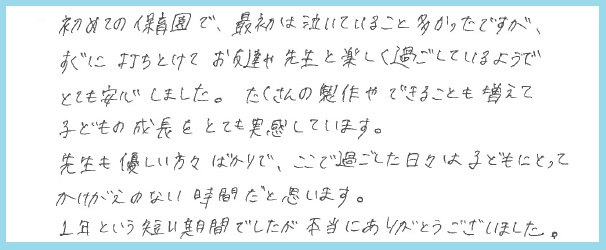 初めての保育園で、最初は泣いていること多かったですが、
すぐに打ちとけてお友達や先生と楽しく過ごしているようで
とても安心しました。たくさんの製作やできることも増えて
子どもの成長をとても実感しています。
先生も優しい方々ばかりで、ここで過ごした日々は子どもにとって
かけがえのない時間だと思います。
1年という短い期間でしたが本当にありがとうございました。